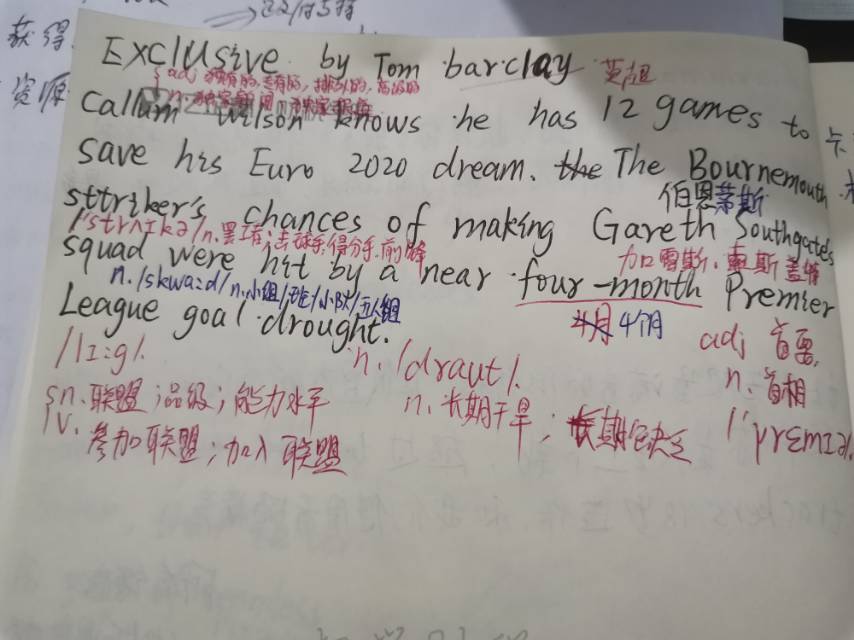 获得
资源
EXCLUSIVE by Tom barclay 英超
adj 独有的,专有的,排外的,高级的
n. 独家新闻
Callum Wilson knows he has 12 games to
save his Euro 2020 dream. the The Bournemouth
伯恩茅斯
sttriker's chances of making Gareth Southgate's
/'strʌɪkə/n.罢工者;击球手,得分手,前锋
加雷斯.索斯盖特
squad were hit by a near four-month Premier
n. /skwɑ:d/n.小组/班/小队/五人组
4月 4个月
League goal drought.
/li:g/. n. /draut/. adj 首要,
n. 首相
sn.联盟;品级;能力水平 n. 长期干旱; 长期缺乏 /'premɪə/.
v. 参加联盟;加入联盟